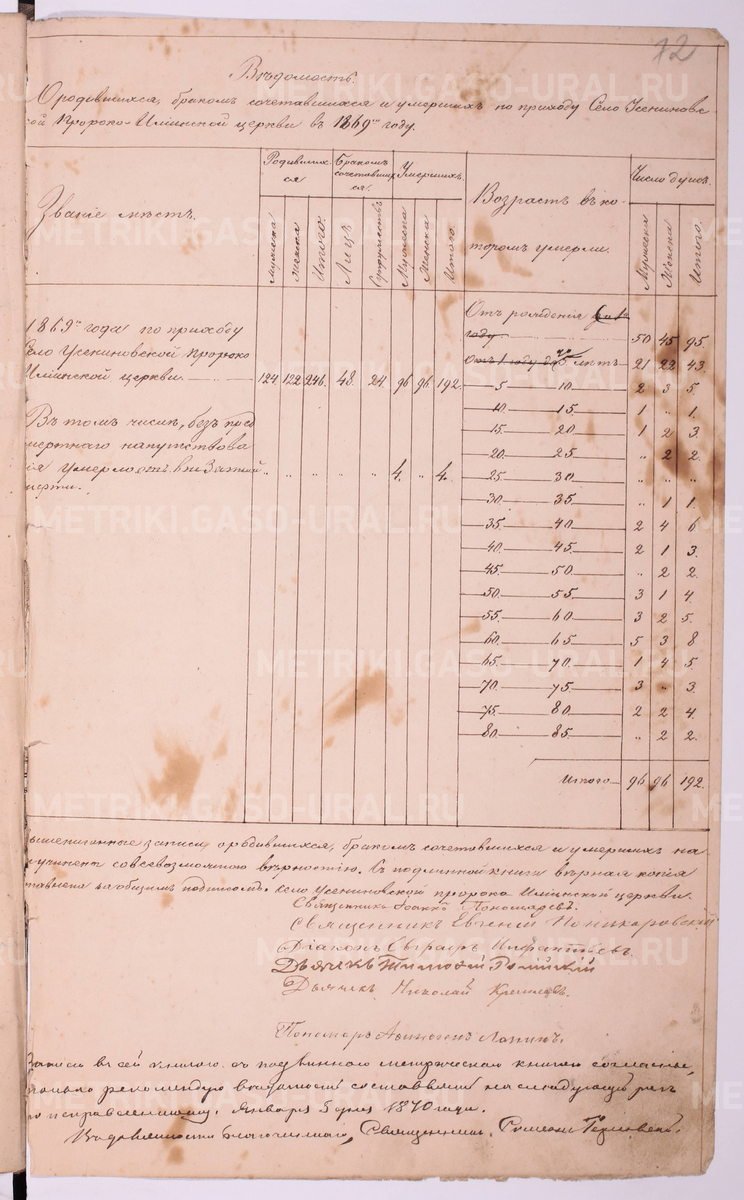 12
Вѣдомость.
О родившихся, бракомъ сочетавшихся и умершихъ по приходу Село Усениновс-
кой Пророко-Илiинской церкви въ 1869мъ году.
Званiе мѣстъ.
Родивших-
ся
Бракомъ
сочетавших
ся.
Умершихъ.
Возрастъ въ ко-
торомъ умерли.
Число душъ.
Мужеска
Женска
Итого.
Лицъ
Супружествъ
Мужеска
Женска
Итого.
Мужеска
Женска
Итого.
1869го года по приходу
Село Усениновской Пророко
Илiинской церкви
124. 122. 246. 48. 24. 96. 96. 192.
Въ томъ числѣ, безъ пред
смертнаго напутствова
нiя умерло
„ „ „ „ „ 4. „ 4.
Отъ рожденiя
году 50 45 95.
Отъ 1 году до 5 лѣтъ 21 22 43.
5 10 2 3 5.
10 15 1 „ 1.
15. 20 1 2 3.
20 25 „ 2 2.
25 30 „ „ „
30 35 „ 1 1.
35. 40 2 4 6.
40. 45 2 1 3.
45 50 „ 2 2.
50 55 3 1 4.
55. 60 3 2 5.
60. 65 5 3 8
65. 70. 1 4 5.
70. 75. 3 „ 3.
75 80 2 2 4.
80 85 „ 2 2.
Итого 96 96 192.
записи о родившихся, бракомъ сочетавшихся и умершихъ на
учинены со всевозможною вѣрностiю. Съ подлинной книги вѣрная копiя
за общимъ подписомъ. Село Усениновской пророко Илiинской церкви.
Священникъ Iоаннъ Пономаревъ.
Священникъ Евгенiй
Дiаконъ
Дьячекъ Тимофей
Дьячекъ Николай
Пономарь Лапинъ.
въ сей книгѣ съ подлинною метрическою книгою согласны,
только рекомендую вѣдомости составлять на слѣдующiй разъ
по исправленному. Января 5 дня 1870 года.
Въ должности благочиннаго, Священникъ
METRIKI.GASO-URAL.RU
METRIKI.GASO-URAL.RU
METRIKI.GASO-URAL.RU
METRIKI.GASO-URAL.RU
METRIKI.GASO-URAL.RU
METRIKI.GASO-URAL.RU
METRIKI.GASO-URAL.RU